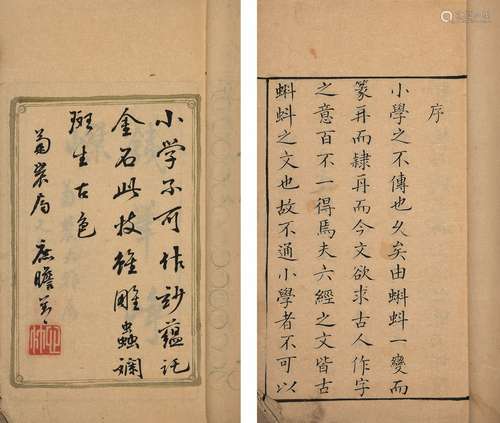 小學不可作
金石此技雖雕蟲斕
斑生古色
序
小學之不傳也久矣由蝌蚪一變而
篆再而隸再而今文欲求古人作字
之意百不一得焉夫六經之文皆古
蝌蚪之文也故不通小學者不可以